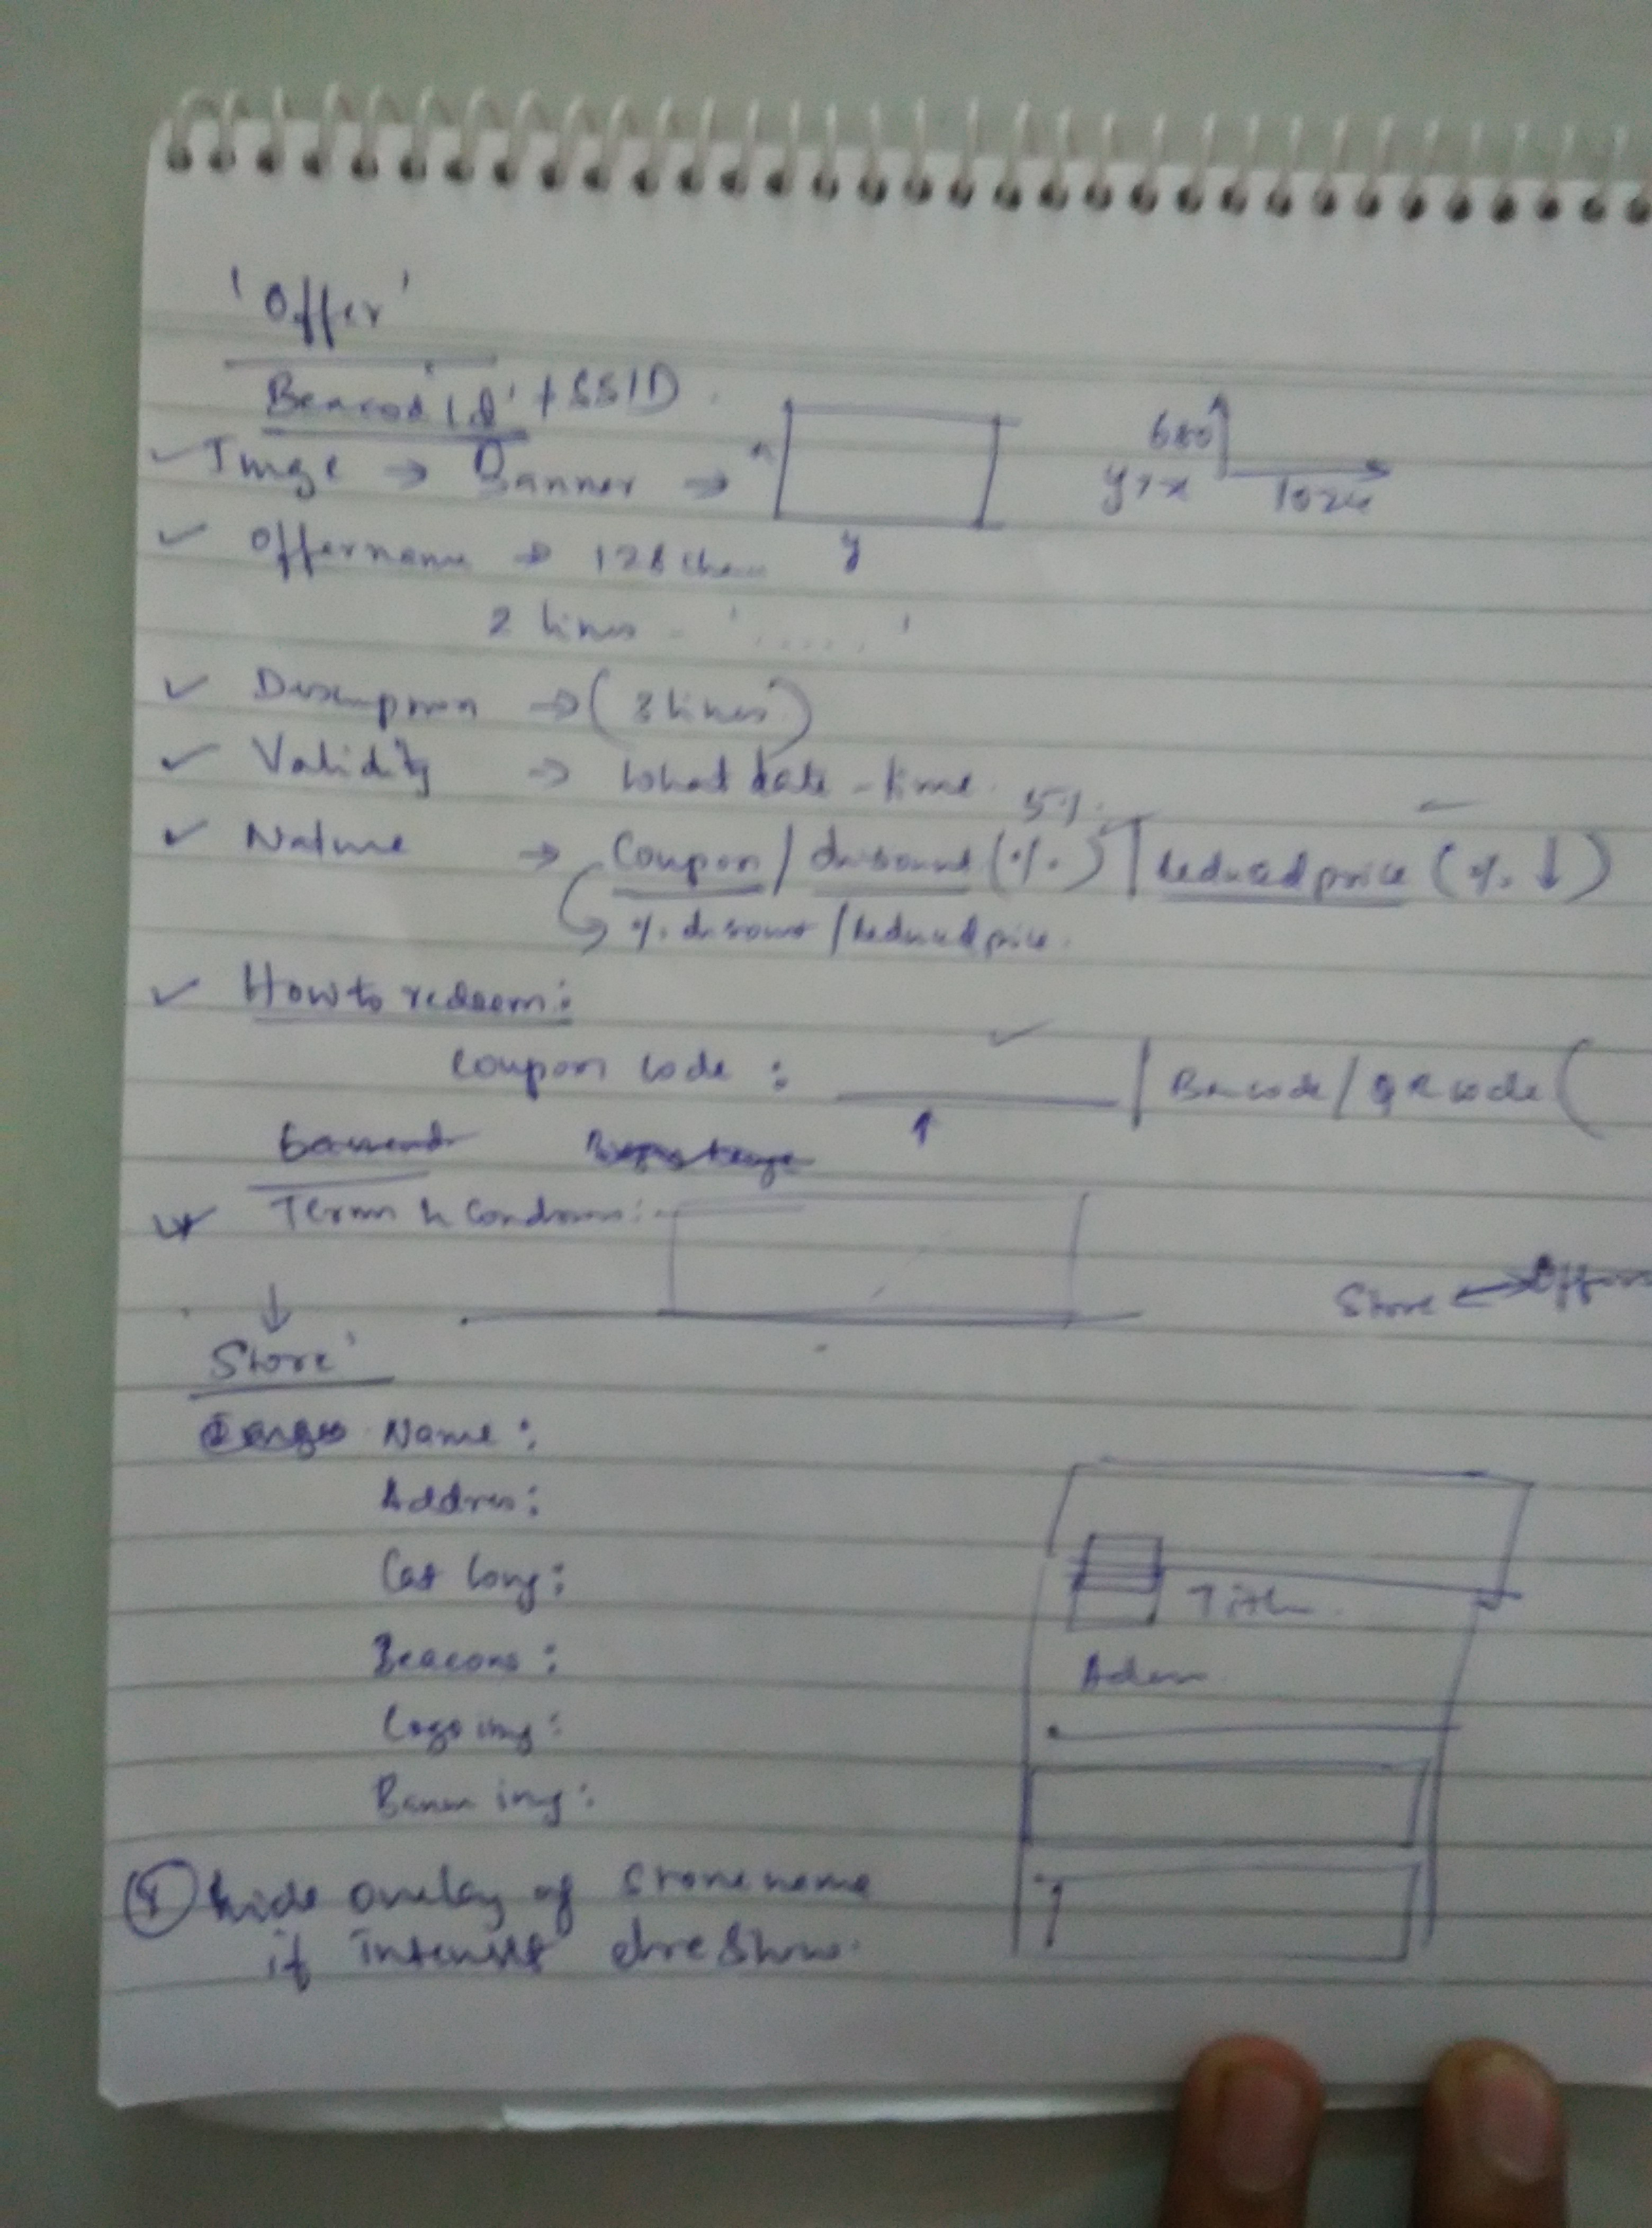 'Offer'
Beacod Id' + SSID
Image → Banner → x y 680 y > x 1024
Offername → 128 char
2 lines - '.....'
Description → (3 lines)
Validity → What date - time.
5%
Nature → Coupon / discount (%) | Reduced price (% ↓)
% discount / Reduced price.
How to redeem:
Coupon code : | Barcode / QR code (
Terms & Conditions:
Store ↔ Offers
↓
Store'
Name :
Address :
Lat Long :
Beacons :
Logo img :
Banner img :
Title
Address
hide overlay of storename
if